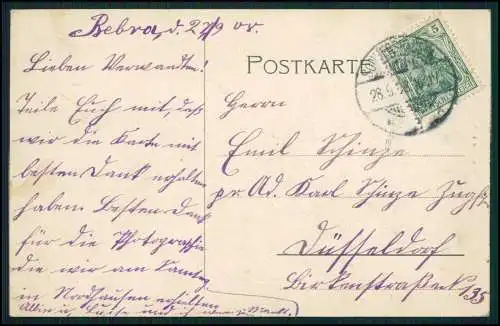 Bebra, d. 27/9 05.
Lieben Verwandten!
Teile Euch mit, daß
wir die Karte mit
besten Dank erhalten
haben. Besten Dank
für die Photographie
die wir am Samstag
in Nordhausen erhielten
und ich
POSTKARTE
Herrn
Emil Schinze
pr. Ad. Karl Schinze
Düsseldorf
Birkenstraße No 135
5
28.9